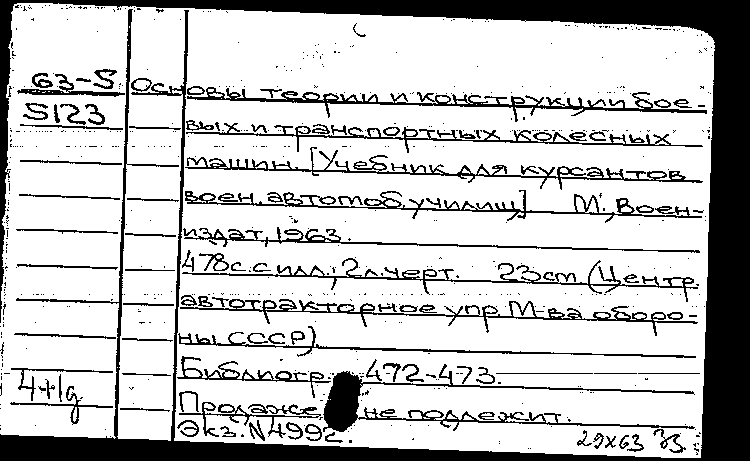 63-5 Основы теории и конструкции бое-
5123 вых и транспортных колесных
машин. [Учебник для курсантов
воен. автомоб. училищ] М., Воен-
издат, 1963.
478с. с илл.; 2л. черт. 23ст. (Центр.
автотракторное упр. М-ва оборо-
ны СССР).
Библиогр. 472-473.
4+1д Продаже не подлежит.
Экз. N4992.
29X63